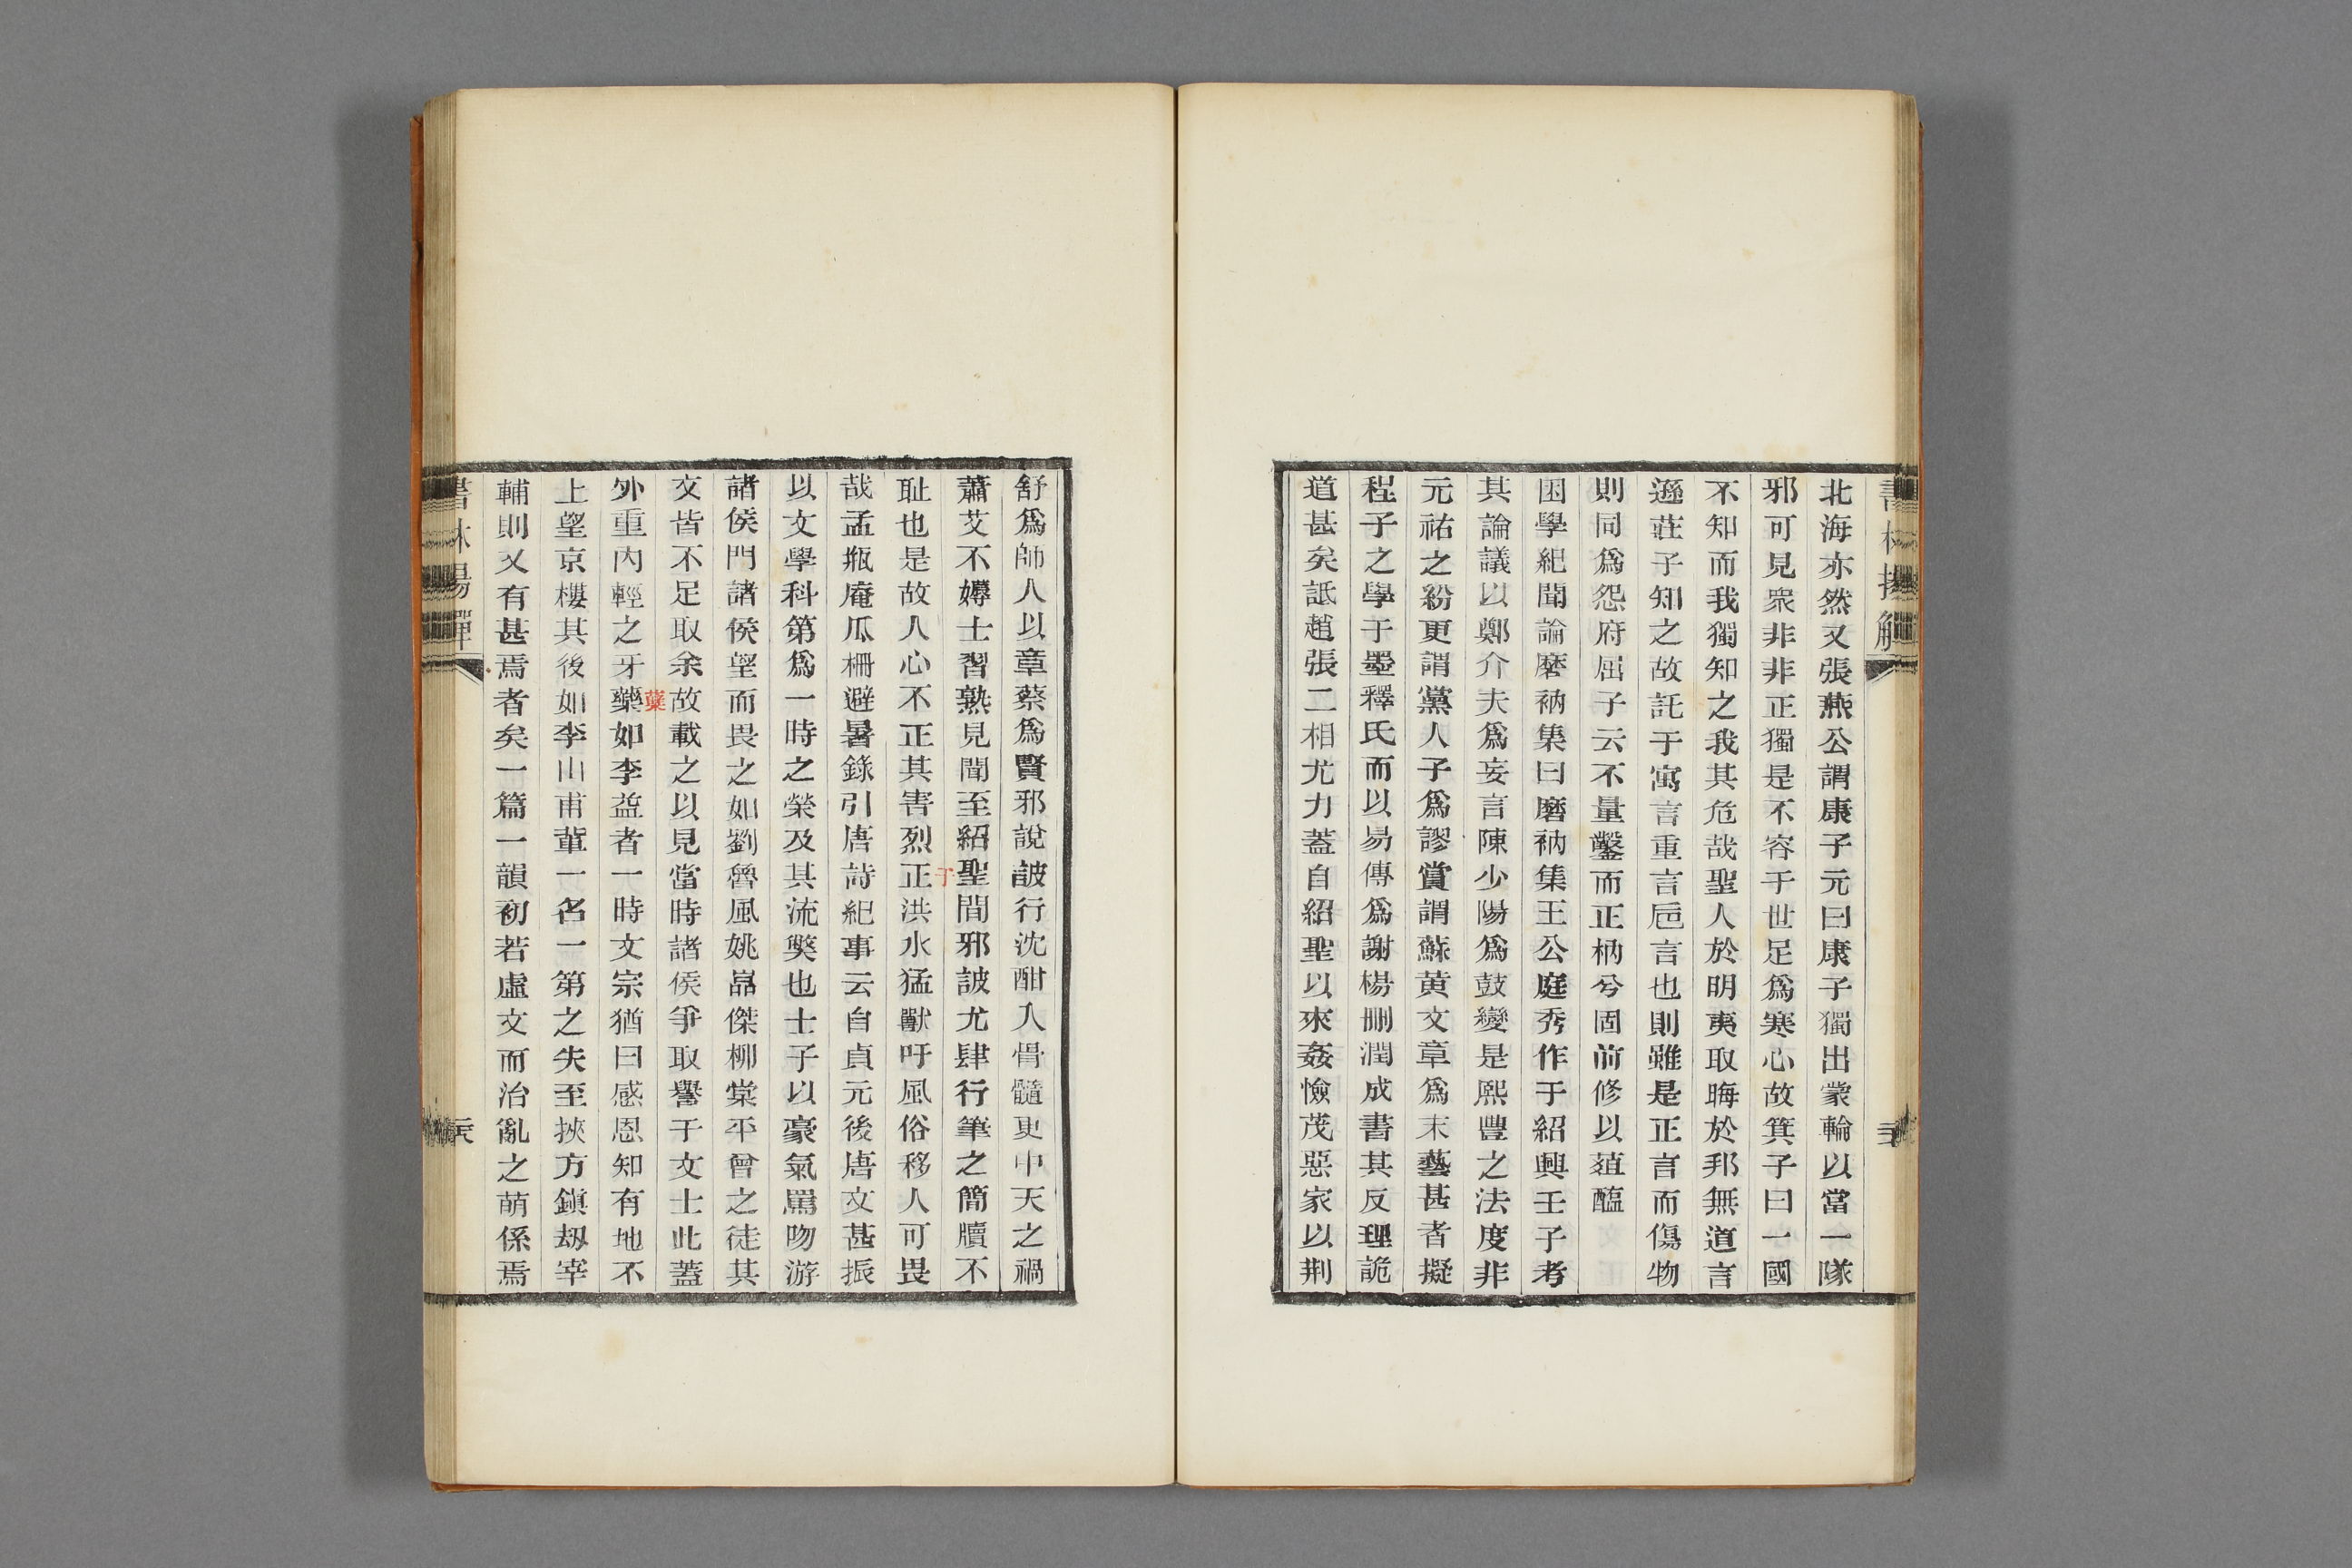 書林揚觶
北海亦然又張燕公謂康子元曰康子獨出蒙輪以當一隊
邪可見衆非非正獨是不容于世足爲寒心故箕子曰一國
不知而我獨知之我其危哉聖人於明夷取晦於邦無道言
遜莊子知之故託于寓言重言巵言也則雖是正言而傷物
則同爲怨府屈子云不量鑿而正枘兮固前修以菹醢
困學紀聞論磨衲集曰磨衲集王公庭秀作于紹興壬子考
其論議以鄭介夫爲妄言陳少陽爲鼓變是熙豐之法度非
元祐之紛更謂黨人子爲謬賞謂蘇黃文章爲末藝甚者擬
程子之學于墨釋氏而以易傳爲謝楊删潤成書其反理詭
道甚矣詆趙張二相尤力蓋自紹聖以來姦憸茂惡家以荆
舒爲師人以章蔡爲賢邪說詖行沈酣入骨髓更中天之禍
蕭艾不嫭士習熟見聞至紹聖間邪詖尤肆行筆之簡牘不
于
耻也是故人心不正其害烈正洪水猛獸吁風俗移人可畏
哉孟瓶庵瓜柵避暑錄引唐詩紀事云自貞元後唐文甚振
以文學科第爲一時之榮及其流獘也士子以豪氣罵吻游
諸侯門諸侯望而畏之如劉魯風姚嵓傑柳棠平曾之徒其
文皆不足取余故載之以見當時諸侯爭取譽于文士此蓋
蘖
外重内輕之牙藥如李益者一時文宗猶曰感恩知有地不
上望京樓其後如李山甫輩一名一第之失至挾方鎭刼宰
輔則又有甚焉者矣一篇一韻初若虛文而治亂之萌係焉
書林揚觶